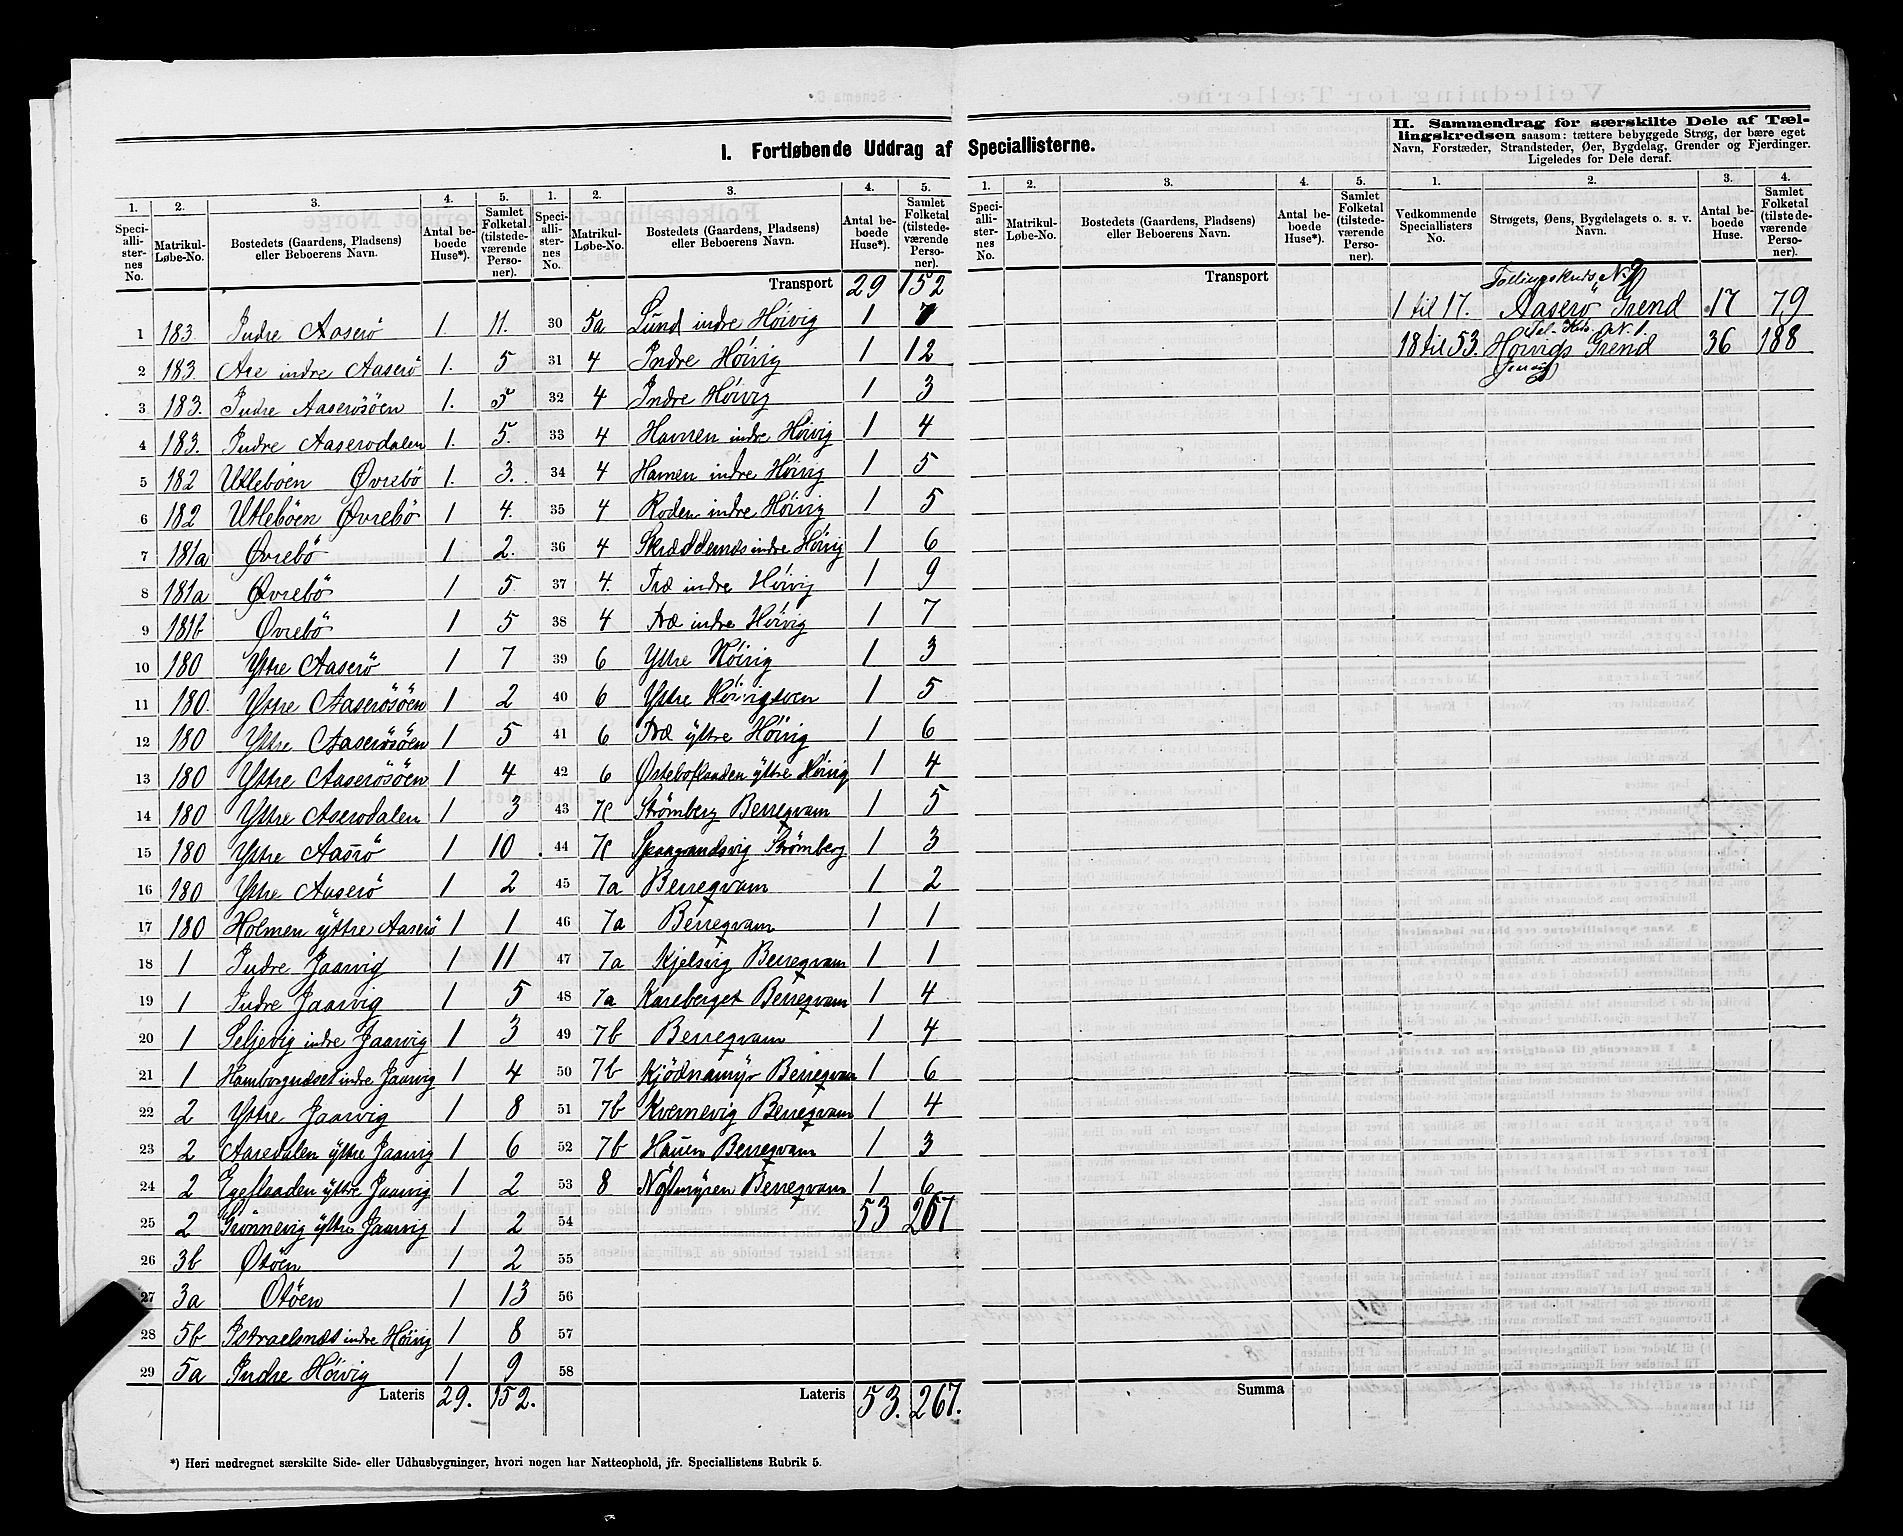 I. Fortløbende Uddrag af Speciallisterne.
II. Sammendrag for særskilte Dele af Tæl-
lingskredsen saasom: tættere bebyggede Strøg, der bære eget
Navn, Forstæder, Strandsteder, Øer, Bygdelag, Grender og Fjerdinger.
Ligeledes for Dele deraf.
1. 2. 3. 4. 5.
Speciallisternes No. Matrikul-Løbe-No. Bostedets (Gaardens, Pladsens) eller Beboerens Navn. Antal beboede Huse*). Samlet Folketal (tilstedeværende Personer).
1 183 Indre Aaserö 1. 11.
2 183. Are indre Aaserö 1. 5
3 183. Indre Aaserösöen 1. 5
4 183. Indre Aaserodalen 1. 5.
5 182 Utleböen Øvrebö 1. 3.
6 182 Utleböen Øvrebö 1 4.
7 181a Øvrebö 1 2.
8 181a Øvrebö 1 5.
9 181b Øvrebö 1 5
10 180 Yttre Aaserö 1 7
11 180 Yttre Aaserösöen 1 2
12 180 Yttre Aaserösöen 1 5
13 180 Yttre Aaserösöen 1 4
14 180 Yttre Aserodalen 1 3
15 180 Yttre Aasrö 1 10
16 180 Yttre Aaserö 1 2
17 180 Holmen yttre Aaserö 1 1
18 1 Indre Jaarvig 1 11
19 1 Indre Jaarvig 1 5
20 1 Seljevig indre Jaarvig 1 3
21 1 Hamborgnæset indre Jaarvig 1 4
22 2 Yttre Jaarvig 1 8
23 2 Aaredalen yttre Jaarvig 1 6
24 2 Egeflaaden yttre Jaarvig 1 2
25 2 Grönnevig yttre Jaarvig 1 2
26 3b Øtöen 1 2
27 3a Otöen 1 13
28 5b Istraelsnæs indre Höivig 1 8
29 5a Indre Höivig 1 9
Lateris 29. 152.
1. 2. 3. 4. 5.
Speciallisternes No. Matrikul-Løbe-No. Bostedets (Gaardens, Pladsens) eller Beboerens Navn. Antal beboede Huse*). Samlet Folketal (tilstedeværende Personer).
Transport 29 152
30 5a Lund indre Höivig 1 7
31 4 Indre Höivig 1 12
32 4 Indre Höivig 1 3
33 4 Havnen indre Höivig 1 4
34 4 Havnen indre Höivig 1 5
35 4 Roden indre Höivig 1 5
36 4 Skræddernæs indre Höivig 1 6
37 4. Træ indre Höivig 1 9
38 4 Træ indre Höivig 1 7
39 6 Yttre Höivig 1 3
40 6 Yttre Höivigsven 1 5
41 6 Træ yttre Höivig 1 6
42 6 Østeboflaaden yttre Höivig 1 4
43 7c Strömberg Berreqvam 1 5
44 7c Strömberg 1 3
45 7a Berreqvam 1 2
46 7a Berreqvam 1 1
47 7a Kjelsvig Berreqvam 1 1
48 7a Kareberget Berreqvam 1 4
49 7b Berreqvam 1 4
50 7b Kjödnamyr Berreqvam 1 6
51 7b Kvernevig Berreqvam 1 4
52 7b Hauen Berreqvam 1 3
53 8 Berreqvam 1 6
54 53 267
55
56
57
58
Lateris 53. 267.
*) Heri medregnet særskilte Side- eller Udhusbygninger, hvori nogen har Natteophold, jfr. Speciallistens Rubrik 5.
1. 2. 3. 4. 5.
Speciallisternes No. Matrikul-Løbe-No. Bostedets (Gaardens, Pladsens) eller Beboerens Navn. Antal beboede Huse*). Samlet Folketal (tilstedeværende Personer).
Transport
Summa
1. 2. 3. 4.
Vedkommende Speciallisters No. Strøgets, Øens, Bygdelagets o. s. v. Navn. Antal beboede Huse. Samlet Folketal (tilstedeværende Personer).
Tællingskreds No 2
1 til 17. Aaserö Grend 17 79
Tæl. Krds. N. 1.
18 til 53. Höivigs Grend 36 188